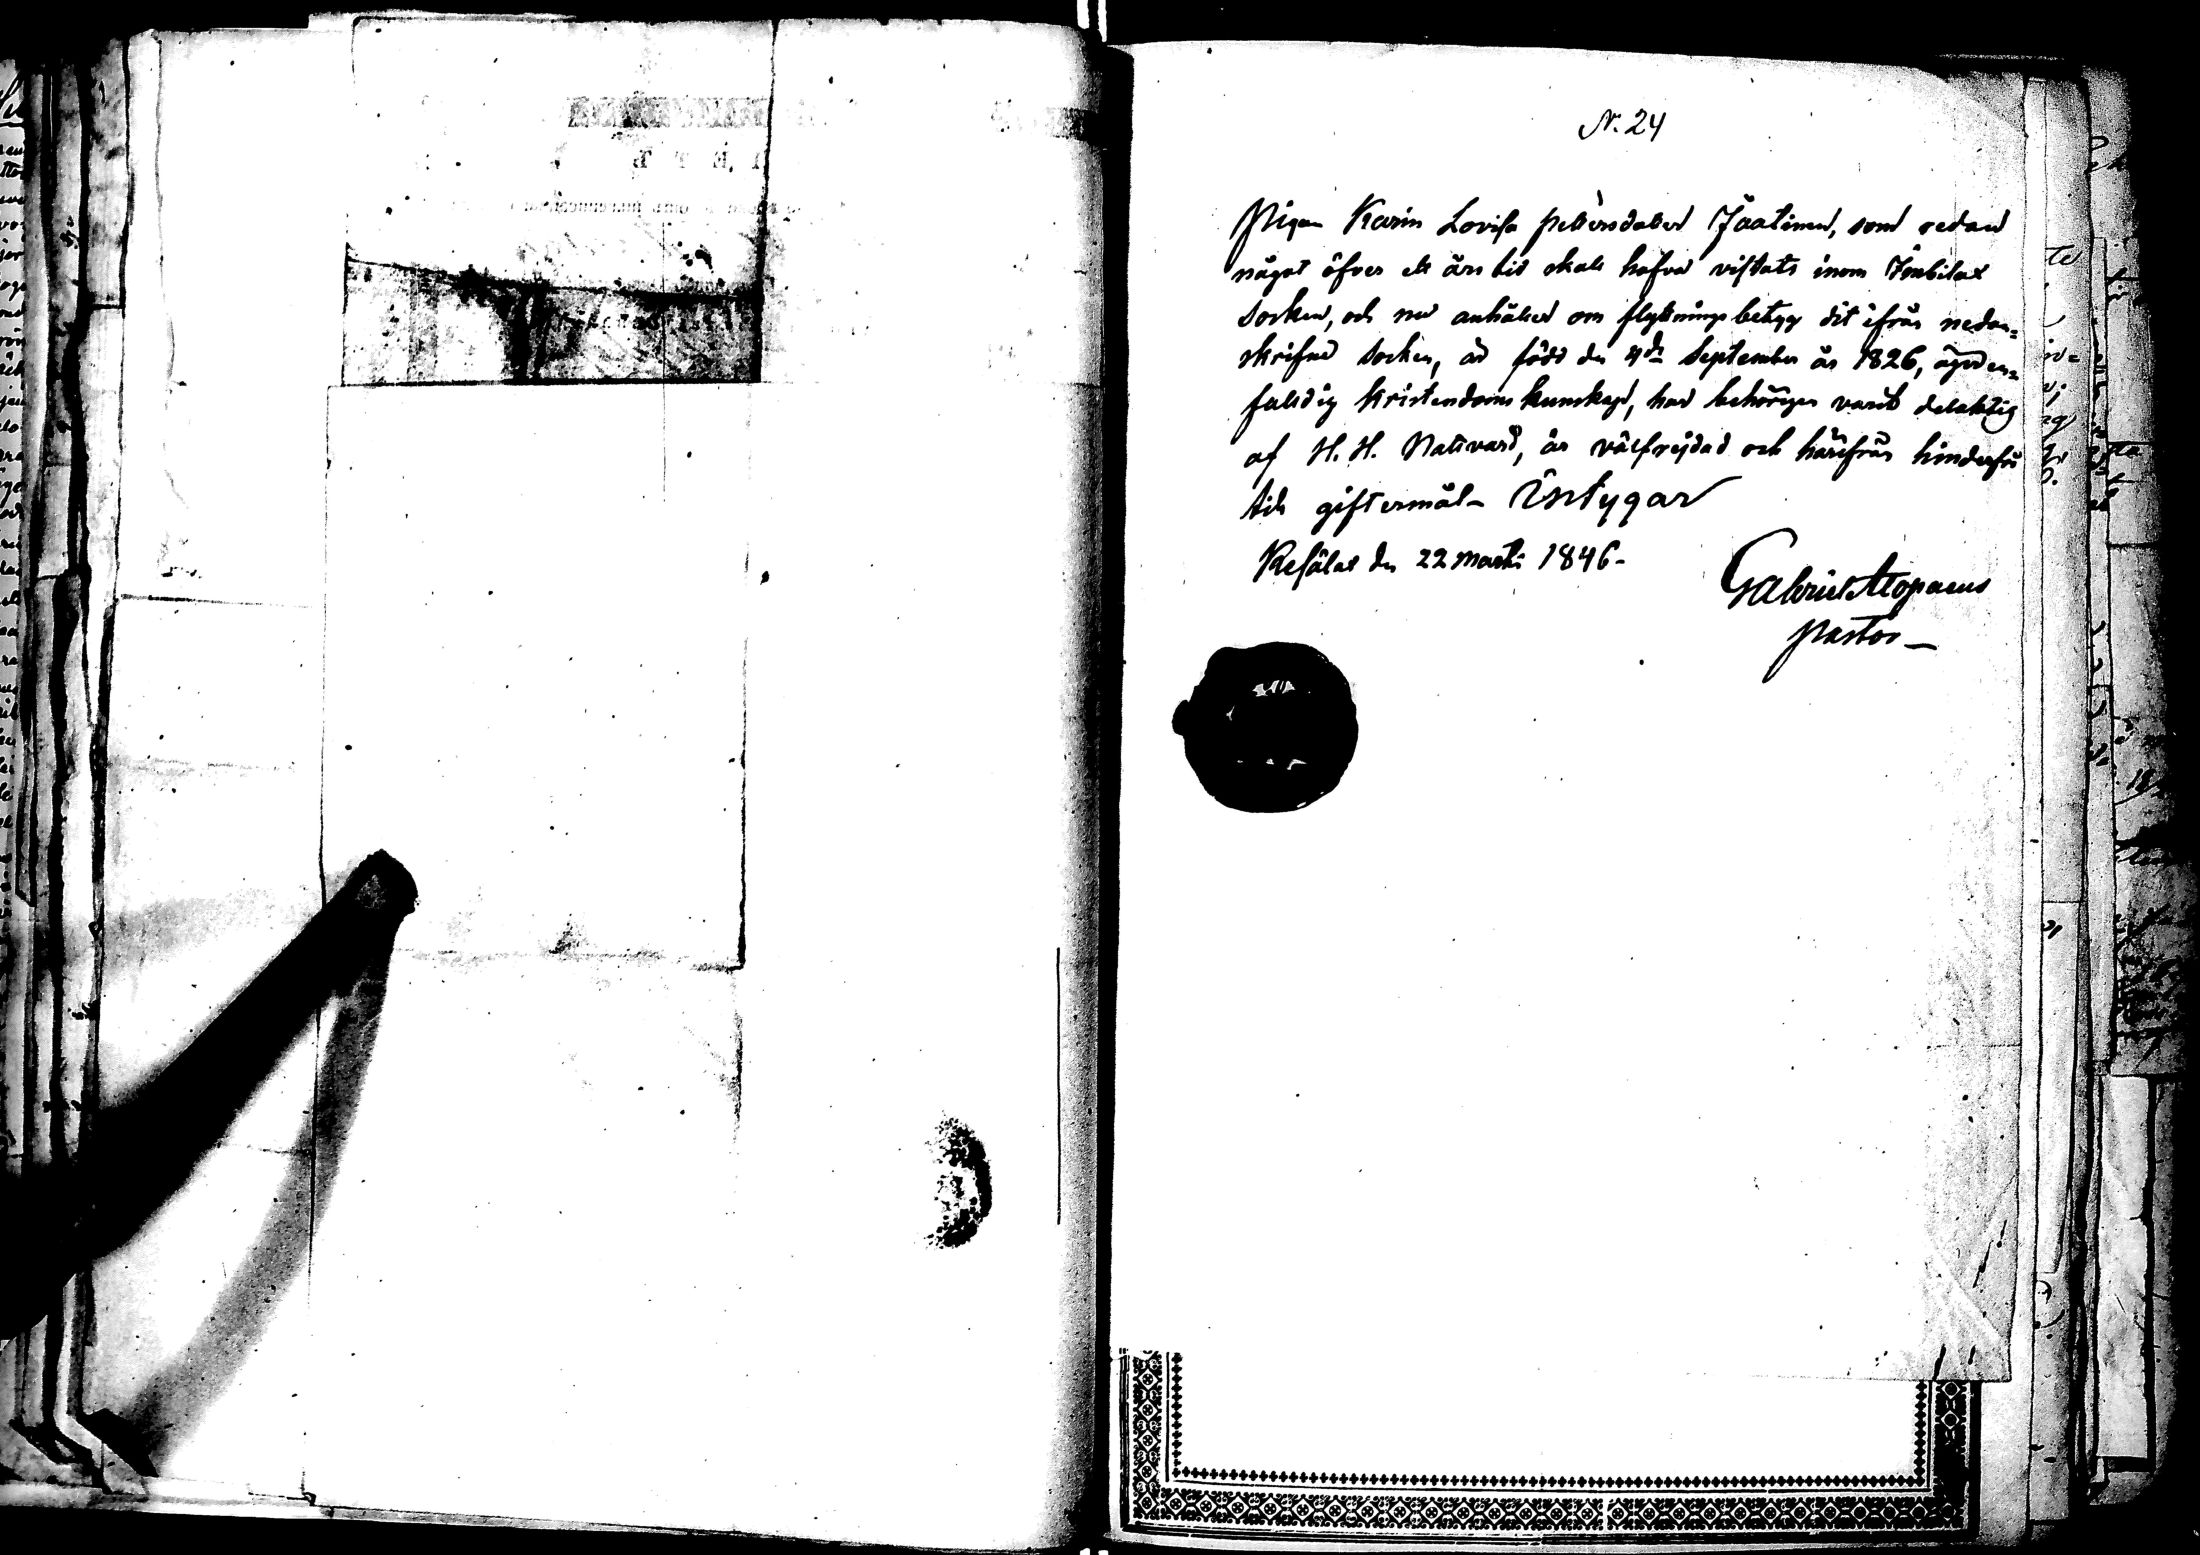 N. 24
Pigan Karin Lovisa Pettersdotter Jäätinen, som redan
något öfver ett års tid skall hafva vistats inom Imbilax
socken, och nu anhåller om flyttningsbetyg dit ifrån nedan=
skrifne socken, är född den 4de September år 1826, äger en=
faldig kristendoms kunskap, har behörigen varit delaktig
af H. H. Nattvard, är välfrejdad och härifrån hinderfri
till giftermål – Intygar
Kesälax den 22 Martii 1846 –
Gabriel Alopaeus
Pastor –